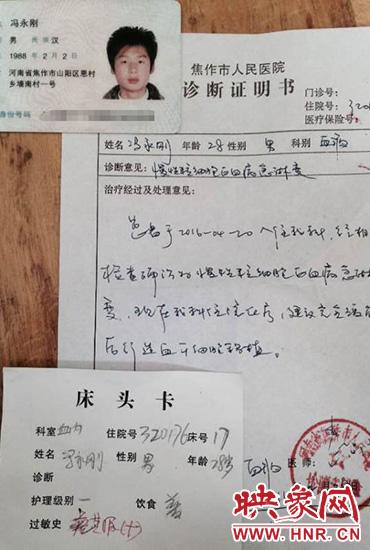 冯永刚
男 民族 汉
1988 年 2 月 2 日
河南省焦作市山阳区恩村
乡墙南村一号
身份号码
焦作市人民医院
诊断证明书
门诊号:
住院号: 320
医疗保险号:
姓名 冯永刚 年龄 28 性别 男 科别 血液
诊断意见: 慢性粒细胞白血病急淋变
治疗经过及处理意见:
患者于2016-04-20入住我科, 经相
检查确诊为慢性粒细胞白血病急淋
变, 现在我科住院治疗, 建议完全缓
后行造血干细胞移植。
医师:
床头卡
科室 血内 住院号 320176 床号 17
姓名 冯永刚 性别 男 年龄 28岁
诊断
护理级别 一 饮食 普
过敏史 (+)
映象网
www.hnr.cn